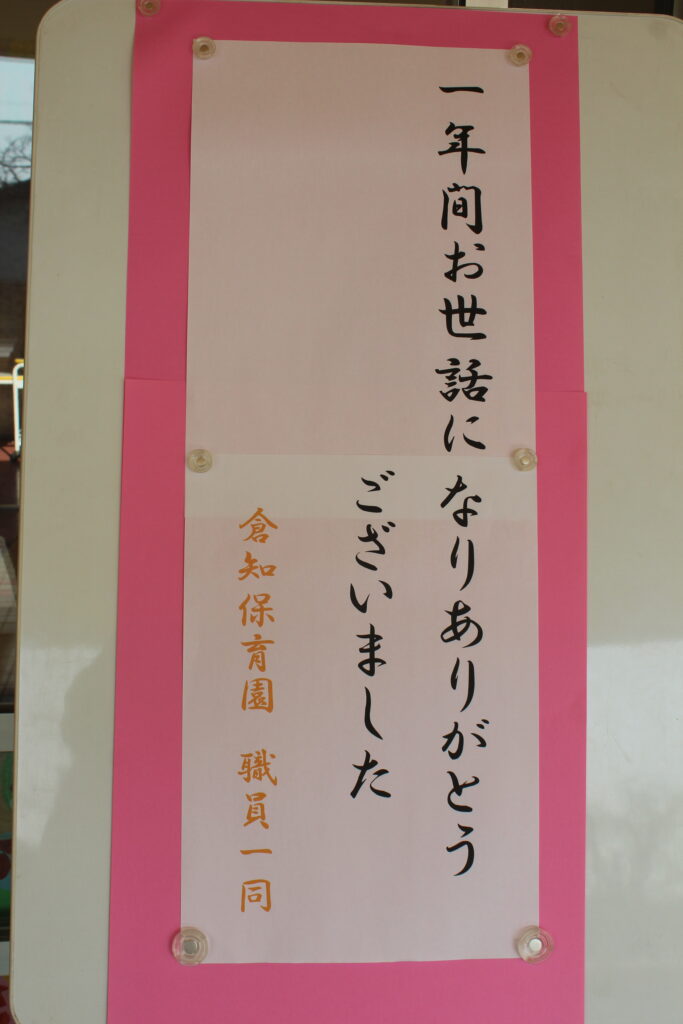 一年間お世話になりありがとう
ございました
倉知保育園　職員一同